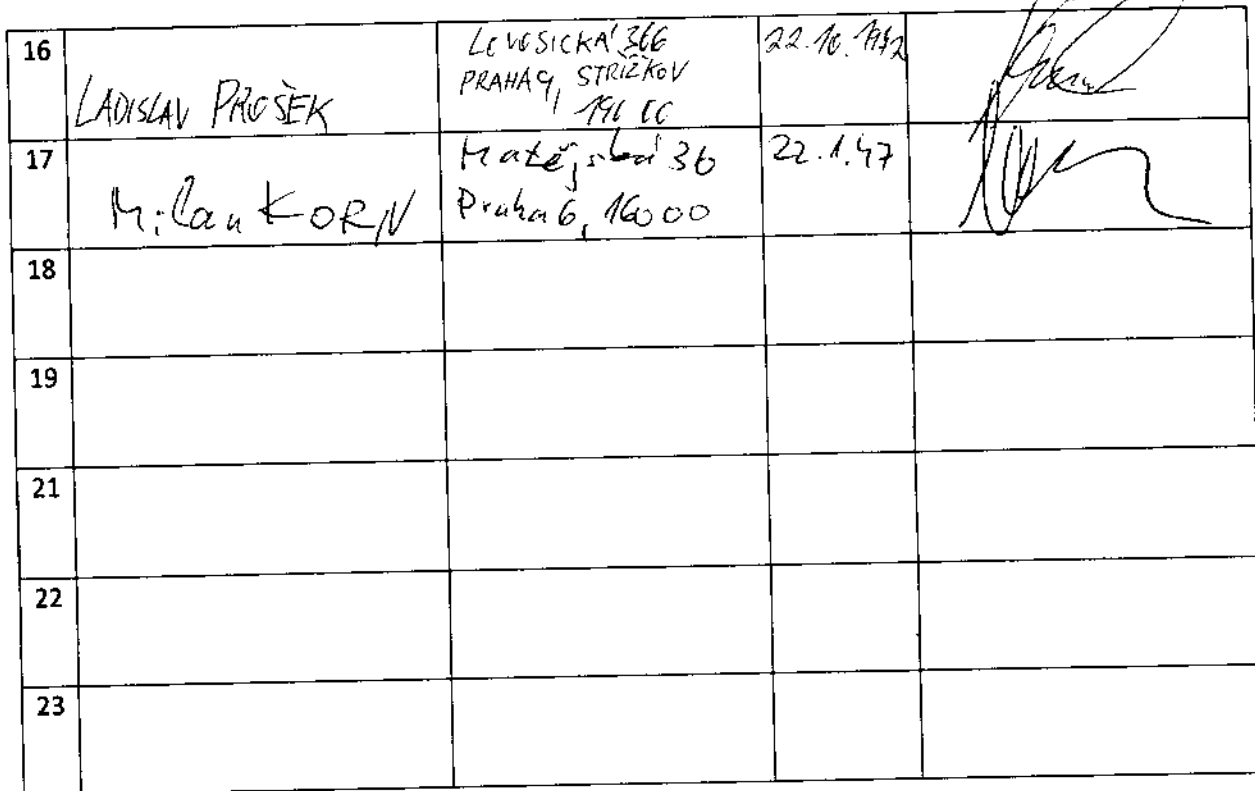 16
LADISLAV PROŠEK
LOVOSICKÁ 366
PRAHA 9, STŘÍŽKOV
190 00
22.10.1942
17
Milan KORN
Matějská 36
Praha 6, 160 00
22.1.47
18
19
21
22
23